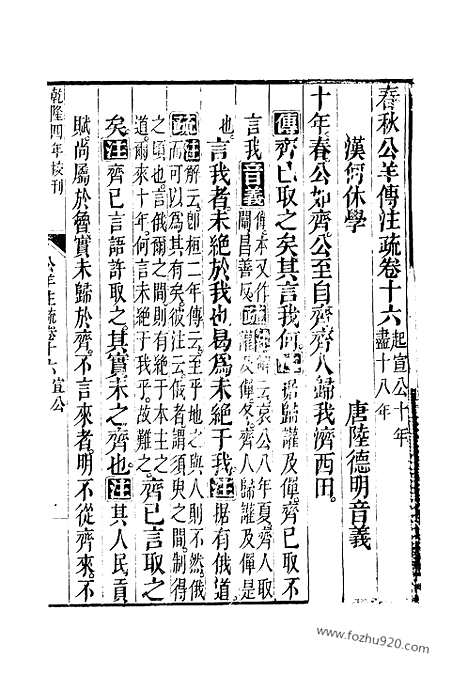 春秋公羊傳注疏卷十六 起宣公十年盡十八年
漢何休學 唐陸德明音義
十年春公如齊公至自齊齊人歸我濟西田
傳齊已取之矣其言我何注据歸讙及僤齊已取不
言我音義僤本又作闡昌善反疏注解云哀公八年夏齊人取讙及僤冬齊人歸讙及僤是
也言我者未絶於我也曷爲未絶于我注据有俄道
疏注解云即桓二年傳云至乎地之與人則不然俄而可以為其有矣彼注云俄者謂須臾之間制得
之頃也言俄爾之間則有絶于本主之道爾來十年何言未絶于我乎故難之齊已言取之
矣注齊已言語許取之其實未之齊也注其人民貢
賦尚屬於魯實未歸於齊不言來者明不從齊來不
乾隆四年校刊 公羊注疏卷十六宣公 一
www.fozhu920.com